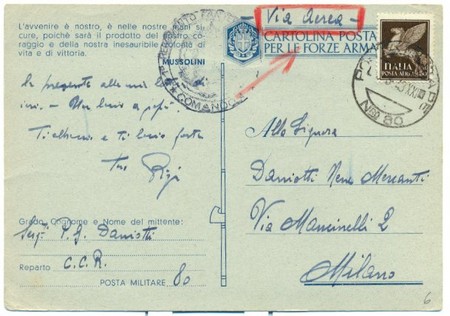 L'avvenire è nostro, è nelle nostre mani si-
cure, poichè sarà il prodotto del nostro co-
raggio e della nostra inesauribile volontà di
vita e di vittoria.
MUSSOLINI
Via Aerea
CARTOLINA POSTA
PER LE FORZE ARMA
POSTA AEREA
COMANDO
No 80
la presente alle
Un bacio a
Ti abbraccio e ti bacio forte
tuo Pigi
Grado, Cognome e Nome del mittente:
Serg. P. G. Daniotti
Reparto C.C.R.
POSTA MILITARE 80
Alla Signora
Daniotti Nene Mercanti
Via Mancinelli 2
Milano
6